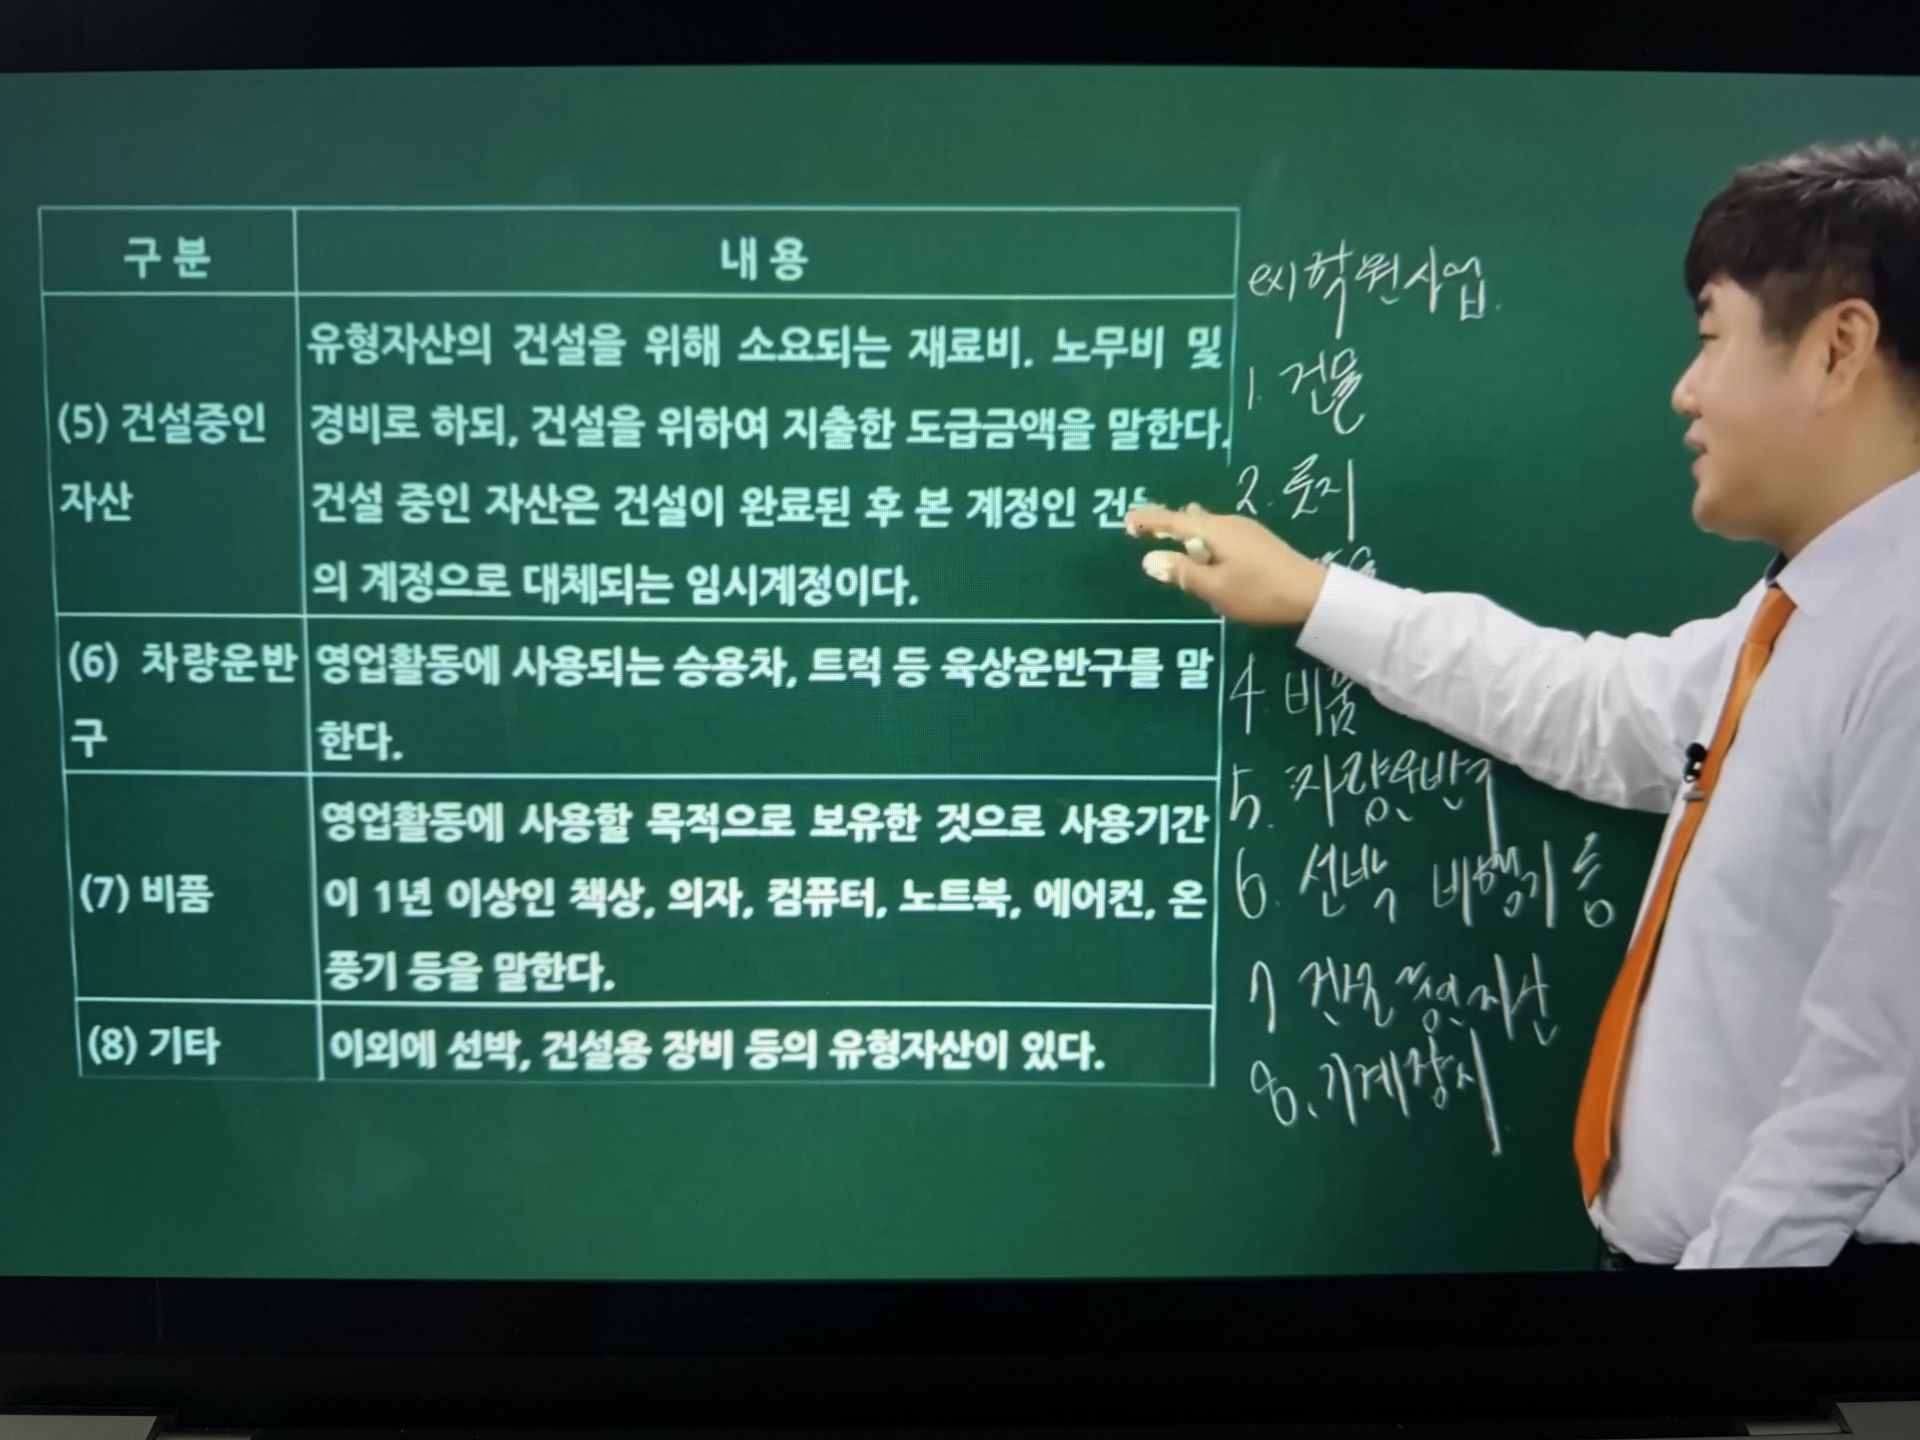 구 분
내 용
(5) 건설중인
자산
유형자산의 건설을 위해 소요되는 재료비. 노무비 및
경비로 하되, 건설을 위하여 지출한 도급금액을 말한다.
건설 중인 자산은 건설이 완료된 후 본 계정인
의 계정으로 대체되는 임시계정이다.
(6) 차량운반
구
영업활동에 사용되는 승용차, 트럭 등 육상운반구를 말
한다.
(7) 비품
영업활동에 사용할 목적으로 보유한 것으로 사용기간
이 1년 이상인 책상, 의자, 컴퓨터, 노트북, 에어컨, 온
풍기 등을 말한다.
(8) 기타
이외에 선박, 건설용 장비 등의 유형자산이 있다.
ex) 학원사업.
1. 건물
2. 토지
4. 비품
5. 차량운반구
6. 선박 비행기 등
7 건설중인자산
8. 기계장치